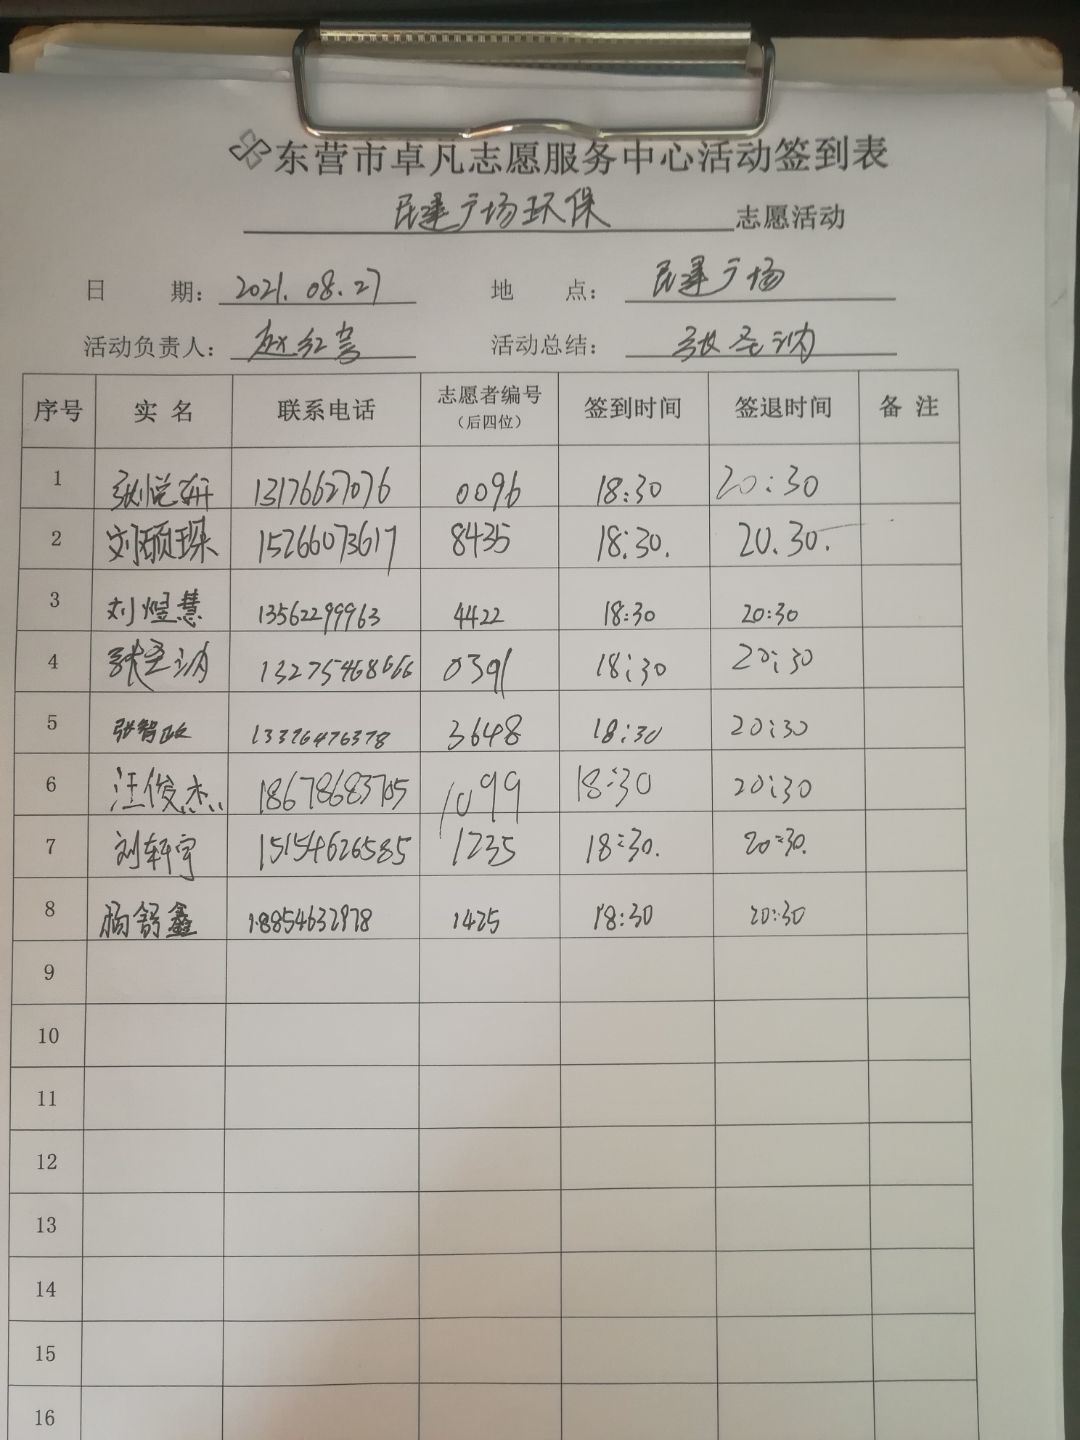 东营市卓凡志愿服务中心活动签到表
民建广场环保 志愿活动
日 期: 2021.08.27 地 点: 民建广场
活动负责人: 赵红 活动总结: 张圣
序号 实名 联系电话 志愿者编号(后四位) 签到时间 签退时间 备注
1 悦 13176627076 0096 18:30 20:30
2 刘硕琛 15266073617 8435 18:30. 20.30.
3 刘煜慧 13562299963 4422 18:30 20:30
4 张圣 13275468666 0391 18:30 20:30
5 张智 13376476378 3648 18:30 20:30
6 汪俊杰 18678683705 1099 18:30 20:30
7 刘轩宇 15154626585 1235 18:30. 20:30.
8 杨舒鑫 18854632978 1425 18:30 20:30
9
10
11
12
13
14
15
16